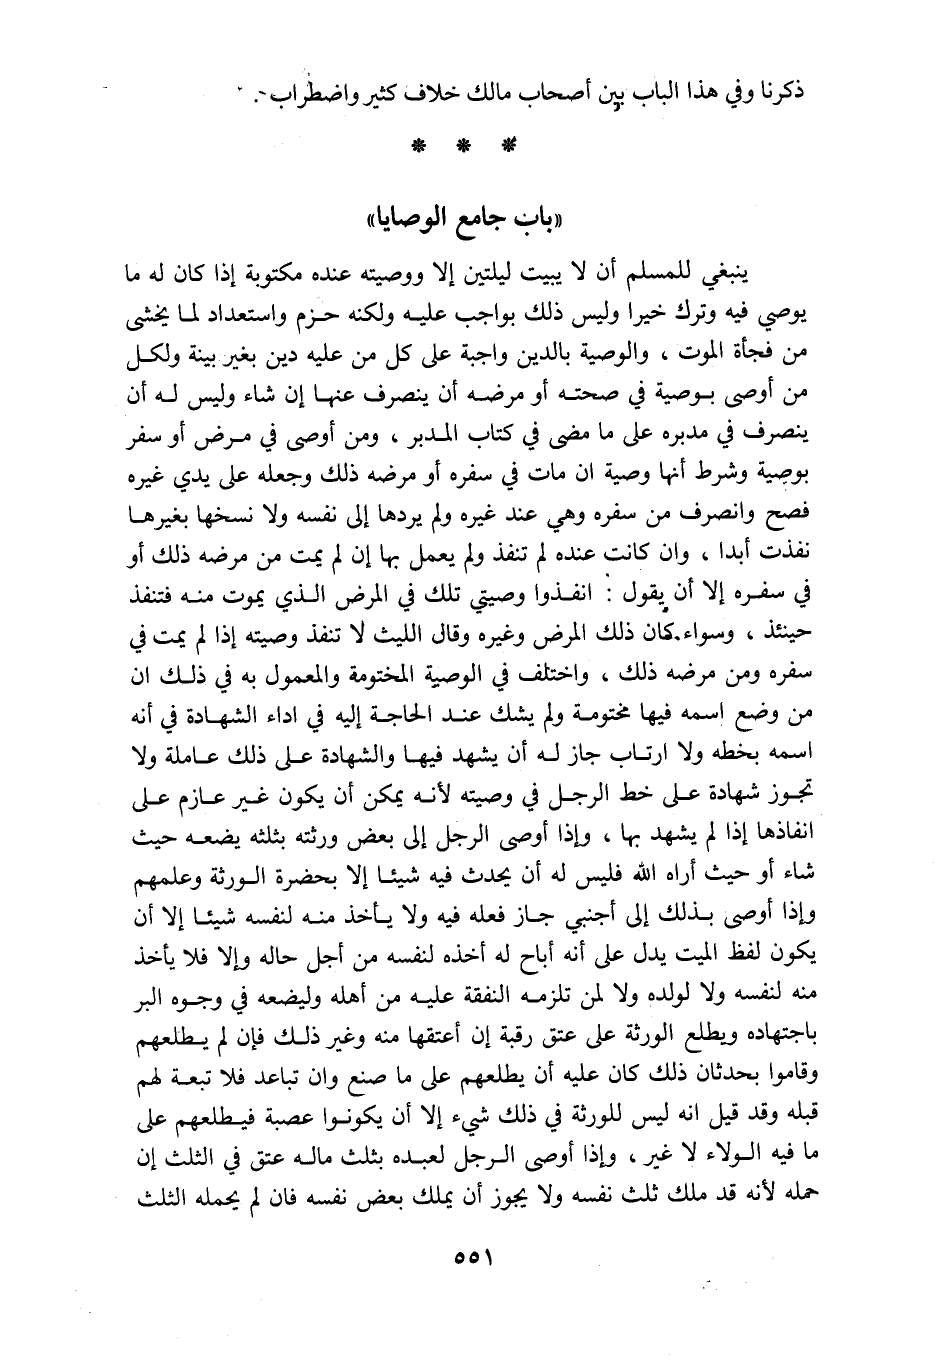 ذكرنا وفي هذا الباب بين أصحاب مالك خلاف كثير واضطراب .
* * *
«باب جامع الوصايا»
ينبغي للمسلم أن لا يبيت ليلتين إلا ووصيته عنده مكتوبة إذا كان له ما
يوصي فيه وترك خيرا وليس ذلك بواجب عليه ولكنه حزم واستعداد لما يخشى
من فجأة الموت ، والوصية بالدين واجبة على كل من عليه دين بغير بينة ولكل
من أوصى بوصية في صحته أو مرضه أن ينصرف عنها إن شاء وليس له أن
ينصرف في مدبره على ما مضى في كتاب المدبر ، ومن أوصى في مرض أو سفر
بوصية وشرط أنها وصية ان مات في سفره أو مرضه ذلك وجعله على يدي غيره
فصح وانصرف من سفره وهي عند غيره ولم يردها إلى نفسه ولا نسخها بغيرها
نفذت أبدا ، وان كانت عنده لم تنفذ ولم يعمل بها إن لم يمت من مرضه ذلك أو
في سفره إلا أن يقول : انفذوا وصيتي تلك في المرض الذي يموت منه فتنفذ
حينئذ ، وسواء كان ذلك المرض وغيره وقال الليث لا تنفذ وصيته إذا لم يمت في
سفره ومن مرضه ذلك ، واختلف في الوصية المختومة والمعمول به في ذلك ان
من وضع اسمه فيها مختومة ولم يشك عند الحاجة إليه في اداء الشهادة في أنه
اسمه بخطه ولا ارتاب جاز له أن يشهد فيها والشهادة على ذلك عاملة ولا
تجوز شهادة على خط الرجل في وصيته لأنه يمكن أن يكون غير عازم على
انفاذها إذا لم يشهد بها ، وإذا أوصى الرجل إلى بعض ورثته بثلثه يضعه حيث
شاء أو حيث أراه الله فليس له أن يحدث فيه شيئا إلا بحضرة الورثة وعلمهم
وإذا أوصى بذلك إلى أجنبي جاز فعله فيه ولا يأخذ منه لنفسه شيئا إلا أن
يكون لفظ الميت يدل على أنه أباح له أخذه لنفسه من أجل حاله وإلا فلا يأخذ
منه لنفسه ولا لولده ولا لمن تلزمه النفقة عليه من أهله وليضعه في وجوه البر
باجتهاده ويطلع الورثة على عتق رقبة إن أعتقها منه وغير ذلك فإن لم يطلعهم
وقاموا بحدثان ذلك كان عليه أن يطلعهم على ما صنع وان تباعد فلا تبعة لهم
قبله وقد قيل انه ليس للورثة في ذلك شيء إلا أن يكونوا عصبة فيطلعهم على
ما فيه الولاء لا غير ، وإذا أوصى الرجل لعبده بثلث ماله عتق في الثلث إن
حمله لأنه قد ملك ثلث نفسه ولا يجوز أن يملك بعض نفسه فان لم يحمله الثلث
٥٥١